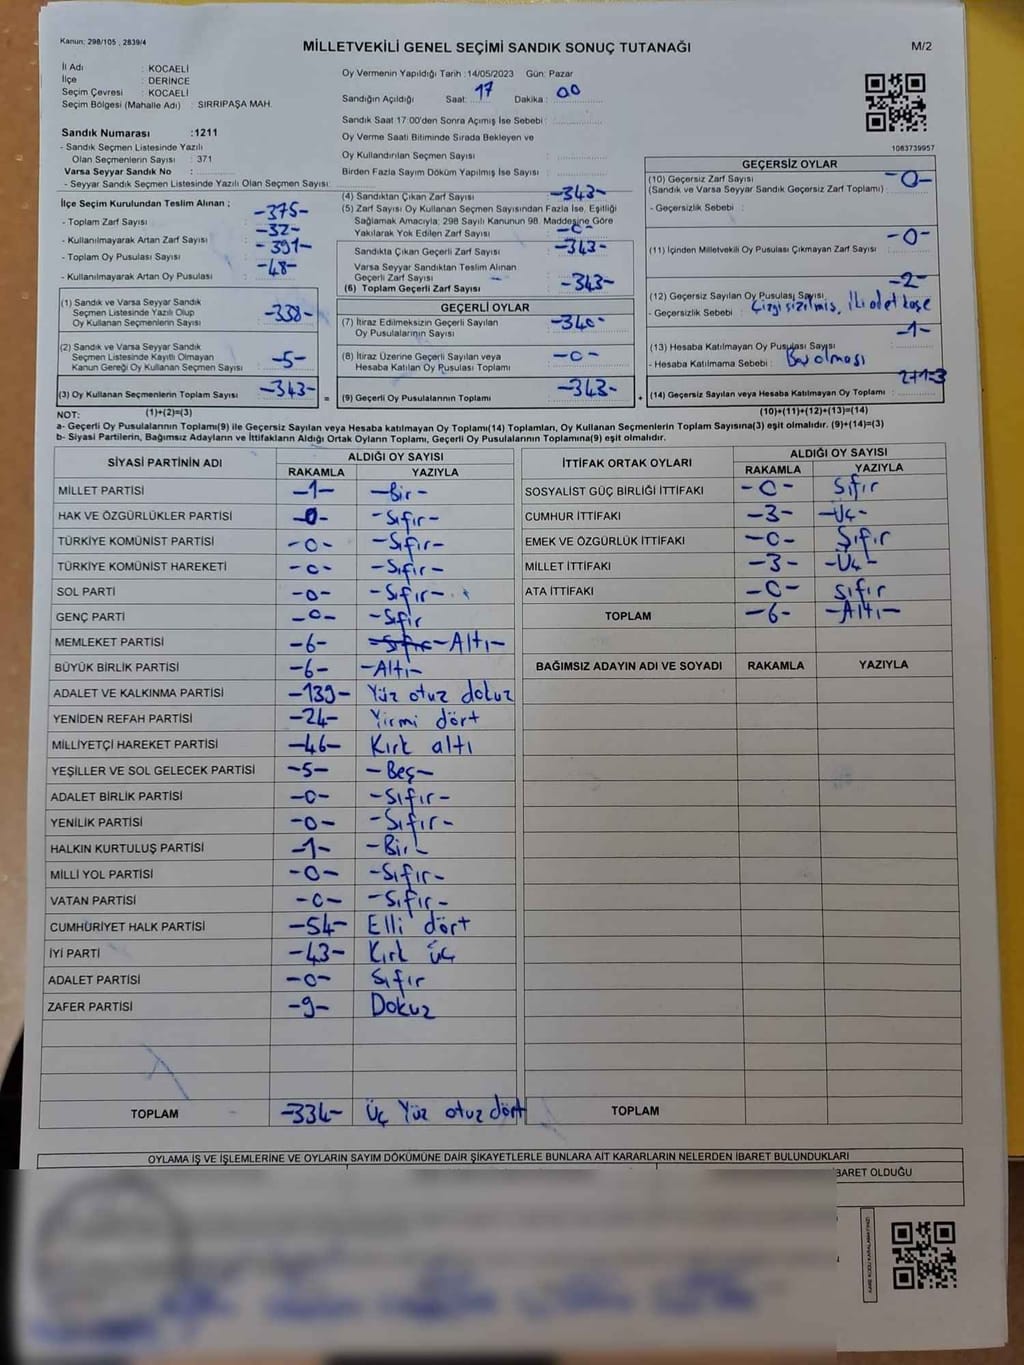 Kanun: 298/105 , 2839/4
MİLLETVEKİLİ GENEL SEÇİMİ SANDIK SONUÇ TUTANAĞI
M/2
İl Adı : KOCAELİ
İlçe : DERİNCE
Seçim Çevresi : KOCAELİ
Seçim Bölgesi (Mahalle Adı) : SIRRIPAŞA MAH.
Sandık Numarası :1211
- Sandık Seçmen Listesinde Yazılı
Olan Seçmenlerin Sayısı : 371
Varsa Seyyar Sandık No :
- Seyyar Sandık Seçmen Listesinde Yazılı Olan Seçmen Sayısı:
İlçe Seçim Kurulundan Teslim Alınan ;
- Toplam Zarf Sayısı : -375-
- Kullanılmayarak Artan Zarf Sayısı : -32-
- Toplam Oy Pusulası Sayısı : -391-
- Kullanılmayarak Artan Oy Pusulası : -48-
(1) Sandık ve Varsa Seyyar Sandık
Seçmen Listesinde Yazılı Olup
Oy Kullanan Seçmenlerin Sayısı : -338-
(2) Sandık ve Varsa Seyyar Sandık
Seçmen Listesinde Kayıtlı Olmayan
Kanun Gereği Oy Kullanan Seçmen Sayısı : -5-
(3) Oy Kullanan Seçmenlerin Toplam Sayısı : -343-
Oy Vermenin Yapıldığı Tarih :14/05/2023 Gün: Pazar
Sandığın Açıldığı Saat: 17 Dakika : 00
Sandık Saat 17:00'den Sonra Açımış İse Sebebi :
Oy Verme Saati Bitiminde Sırada Bekleyen ve
Oy Kullandırılan Seçmen Sayısı :
Birden Fazla Sayım Döküm Yapılmış İse Sayısı :
(4) Sandıktan Çıkan Zarf Sayısı : -343-
(5) Zarf Sayısı Oy Kullanan Seçmen Sayısından Fazla İse, Eşitliği
Sağlamak Amacıyla; 298 Sayılı Kanunun 98. Maddesine Göre
Yakılarak Yok Edilen Zarf Sayısı : -0-
Sandıkta Çıkan Geçerli Zarf Sayısı : -343-
Varsa Seyyar Sandıktan Teslim Alınan
Geçerli Zarf Sayısı : -
(6) Toplam Geçerli Zarf Sayısı : -343-
GEÇERLİ OYLAR
(7) İtiraz Edilmeksizin Geçerli Sayılan
Oy Pusulalarının Sayısı : -340-
(8) İtiraz Üzerine Geçerli Sayılan veya
Hesaba Katılan Oy Pusulası Toplamı : -0-
= (9) Geçerli Oy Pusulalarının Toplamı : -343- +
1083739957
GEÇERSİZ OYLAR
(10) Geçersiz Zarf Sayısı
(Sandık ve Varsa Seyyar Sandık Geçersiz Zarf Toplamı) : -0-
- Geçersizlik Sebebi :
(11) İçinden Milletvekili Oy Pusulası Çıkmayan Zarf Sayısı : -0-
(12) Geçersiz Sayılan Oy Pusulası Sayısı : -2-
- Geçersizlik Sebebi : Çizgi çizilmiş, İki adet kaşe
(13) Hesaba Katılmayan Oy Pusulası Sayısı : -1-
- Hesaba Katılmama Sebebi : Boş olması
(14) Geçersiz Sayılan veya Hesaba Katılmayan Oy Toplamı : 2+1=3
NOT: (1)+(2)=(3) (10)+(11)+(12)+(13)=(14)
a- Geçerli Oy Pusulalarının Toplamı(9) ile Geçersiz Sayılan veya Hesaba katılmayan Oy Toplamı(14) Toplamları, Oy Kullanan Seçmenlerin Toplam Sayısına(3) eşit olmalıdır. (9)+(14)=(3)
b- Siyasi Partilerin, Bağımsız Adayların ve İttifakların Aldığı Ortak Oyların Toplamı, Geçerli Oy Pusulalarının Toplamına(9) eşit olmalıdır.
SİYASİ PARTİNİN ADI ALDIĞI OY SAYISI
RAKAMLA YAZIYLA
MİLLET PARTİSİ -1- -Bir-
HAK VE ÖZGÜRLÜKLER PARTİSİ -0- -Sıfır-
TÜRKİYE KOMÜNİST PARTİSİ -0- -Sıfır-
TÜRKİYE KOMÜNİST HAREKETİ -0- -Sıfır-
SOL PARTİ -0- -Sıfır-
GENÇ PARTİ -0- -Sıfır
MEMLEKET PARTİSİ -6- -Sıfır -Altı-
BÜYÜK BİRLİK PARTİSİ -6- -Altı-
ADALET VE KALKINMA PARTİSİ -139- Yüz otuz dokuz
YENİDEN REFAH PARTİSİ -24- Yirmi dört
MİLLİYETÇİ HAREKET PARTİSİ -46- Kırk altı
YEŞİLLER VE SOL GELECEK PARTİSİ -5- -Beş-
ADALET BİRLİK PARTİSİ -0- -Sıfır-
YENİLİK PARTİSİ -0- -Sıfır-
HALKIN KURTULUŞ PARTİSİ -1- -Bir-
MİLLİ YOL PARTİSİ -0- -Sıfır-
VATAN PARTİSİ -0- -Sıfır-
CUMHURİYET HALK PARTİSİ -54- Elli dört
İYİ PARTİ -43- Kırk üç
ADALET PARTİSİ -0- Sıfır
ZAFER PARTİSİ -9- Dokuz
TOPLAM -334- Üç Yüz otuz dört
İTTİFAK ORTAK OYLARI ALDIĞI OY SAYISI
RAKAMLA YAZIYLA
SOSYALİST GÜÇ BİRLİĞİ İTTİFAKI -0- Sıfır
CUMHUR İTTİFAKI -3- -Üç-
EMEK VE ÖZGÜRLÜK İTTİFAKI -0- Sıfır
MİLLET İTTİFAKI -3- -Üç-
ATA İTTİFAKI -0- Sıfır
TOPLAM -6- -Altı-
BAĞIMSIZ ADAYIN ADI VE SOYADI RAKAMLA YAZIYLA
TOPLAM
OYLAMA İŞ VE İŞLEMLERİNE VE OYLARIN SAYIM DÖKÜMÜNE DAİR ŞİKAYETLERLE BUNLARA AİT KARARLARIN NELERDEN İBARET BULUNDUKLARI
İBARET OLDUĞU